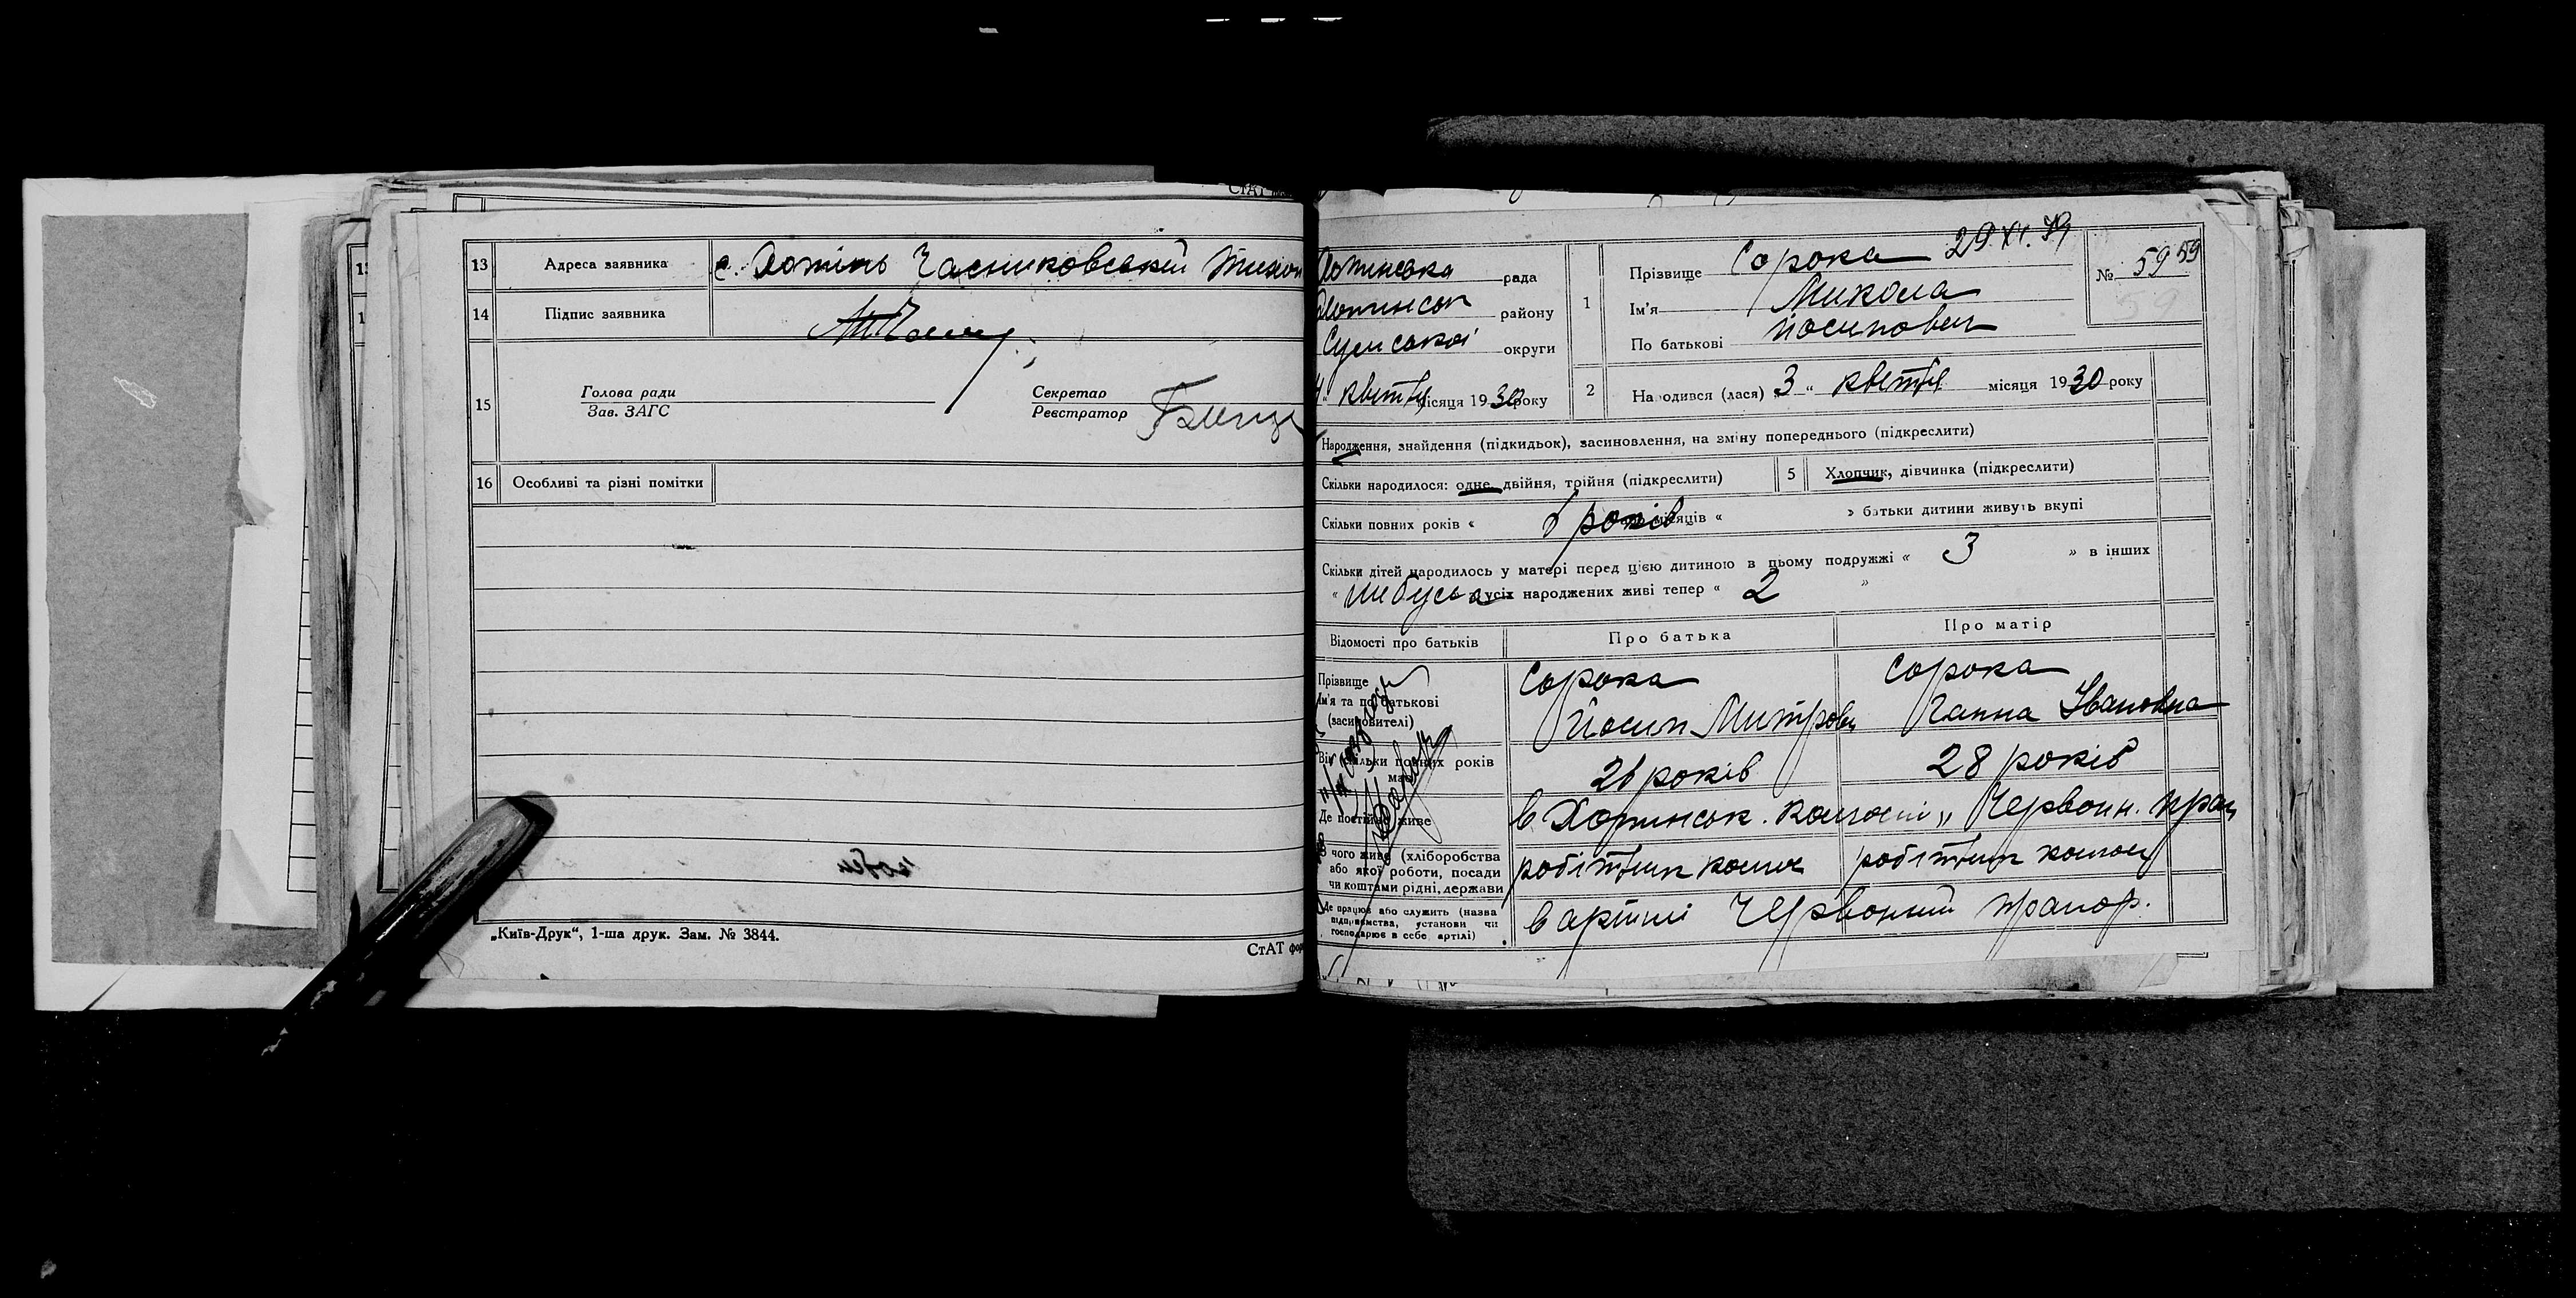 13 Адреса заявника с. Хотінь Часниковській Тихон
14 Підпис заявника
15 Голова ради
Зав. ЗАГС
Секретар
Реєстратор
16 Особливі та різні помітки
„Київ-Друк“, 1-ша друк. Зам. № 3844.
СтАТ фор
Хотинська рада
Хотинськ району
Сумської округи
4 " квітня місяця 1930 року
1 Прізвище Сорока 29.XI.79
Ім'я Микола
По батькові Йосипович
№ 59 59
59
2 Народився (лася) 3 “ квітня місяця 1930 року
Народження, знайдення (підкидьок), засиновлення, на зміну попереднього (підкреслити)
Скільки народилося: одне, двійня, трійня (підкреслити)
5 Хлопчик, дівчинка (підкреслити)
Скільки повних років « 6 років місяців « » батьки дитини живуть вкупі
Скільки дітей народилось у матері перед цією дитиною в цьому подружжі « 3 » в інших
« усіх народжених живі тепер « 2 »
Відомості про батьків Про батька Про матір
Прізвище Сорока Сорока
Ім'я та по батькові Йосип Митров Ганна Івановна
(засиновителі)
Вік скільки повних років має 26 років 28 років
Де постійно живе в Хотинськ. колгоспі „ Червон. прап
З чого живе (хліборобства
або якої роботи, посади
чи коштами рідні, держави
робітник робітник
Де працює або служить (назва
підприємства, установи чи
господарює в себе артілі)
в артілі Червоний прапор.